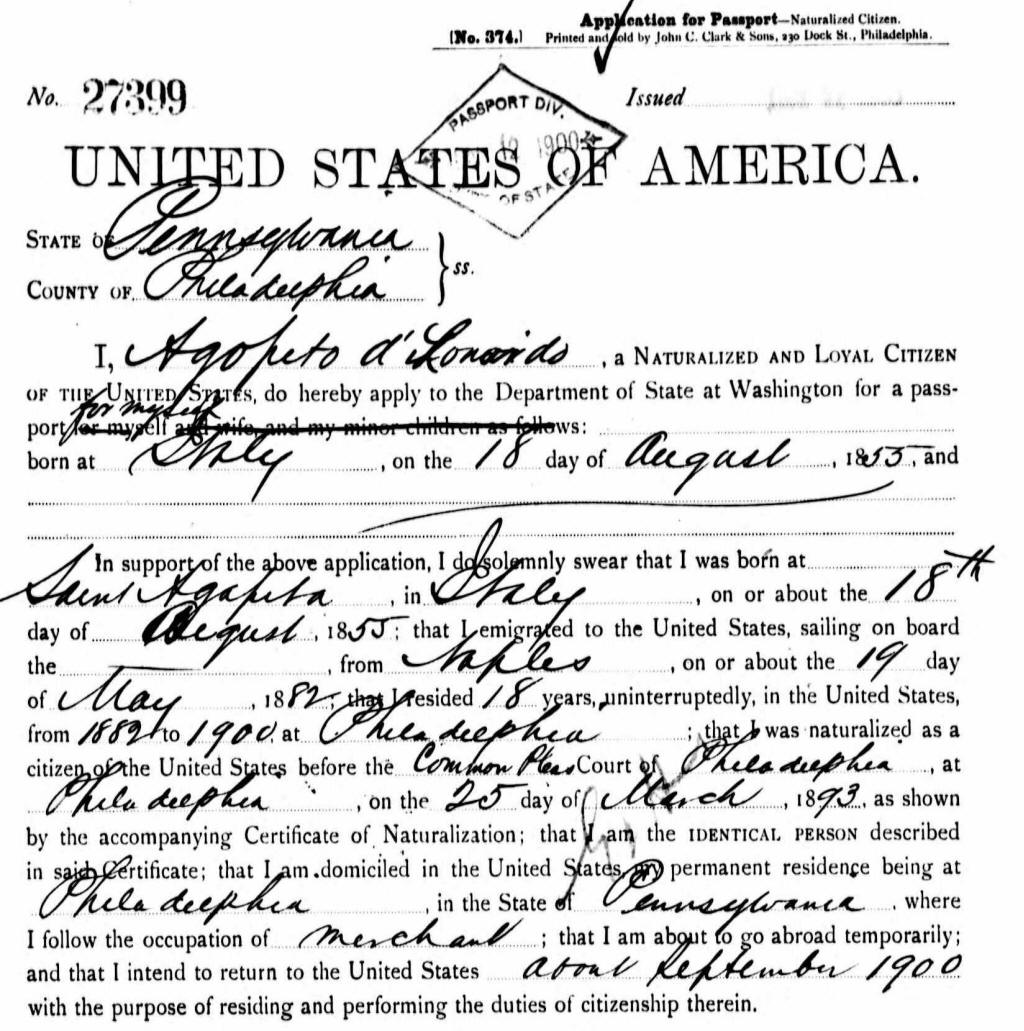 Application for Passport—Naturalized Citizen.
[No. 374.] Printed and sold by John C. Clark & Sons, 230 Dock St., Philadelphia.
No. 27399 Issued
PASSPORT DIV.
12 1900
OF STATE
UNITED STATES OF AMERICA.
STATE OF Pennsylvania
COUNTY OF Philadelphia } ss.
I, Agopito d'Lonardo, a NATURALIZED AND LOYAL CITIZEN
OF THE UNITED STATES, do hereby apply to the Department of State at Washington for a pass-
for myself
port for myself and wife, and my minor children as follows:
born at Italy, on the 18 day of August, 1855, and
In support of the above application, I do solemnly swear that I was born at
Saint Agapita, in Italy, on or about the 18th
day of August, 1855; that I emigrated to the United States, sailing on board
the , from Naples, on or about the 19 day
of May, 1882; that I resided 18 years, uninterruptedly, in the United States,
from 1882 to 1900, at Philadelphia; that I was naturalized as a
citizen of the United States before the Common Pleas Court of Philadelphia, at
Philadelphia, on the 25 day of March, 1893, as shown
by the accompanying Certificate of Naturalization; that I am the IDENTICAL PERSON described
in said Certificate; that I am domiciled in the United States, my permanent residence being at
Philadelphia, in the State of Pennsylvania, where
I follow the occupation of merchant; that I am about to go abroad temporarily;
and that I intend to return to the United States about September 1900
with the purpose of residing and performing the duties of citizenship therein.